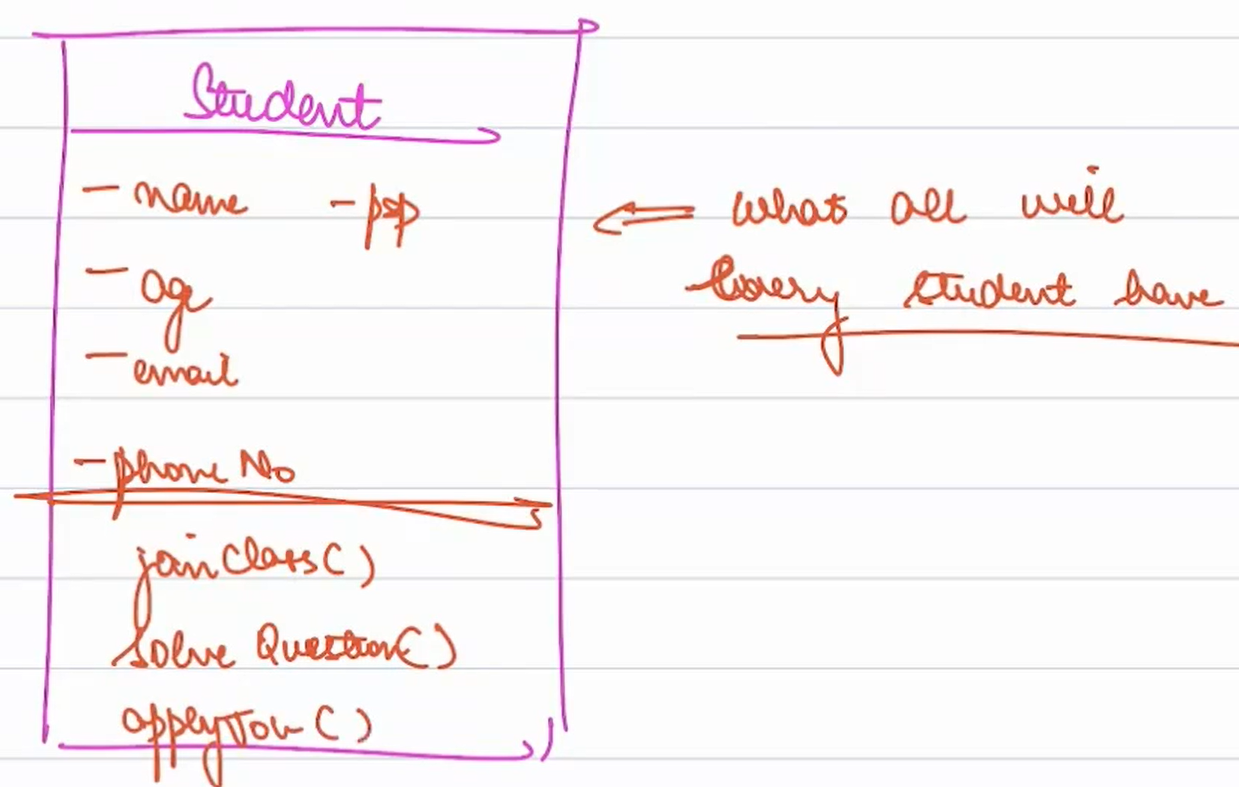 Student
- name - psp
- age
- email
- phone No
joinClass()
Solve Question()
what all will
Every student have